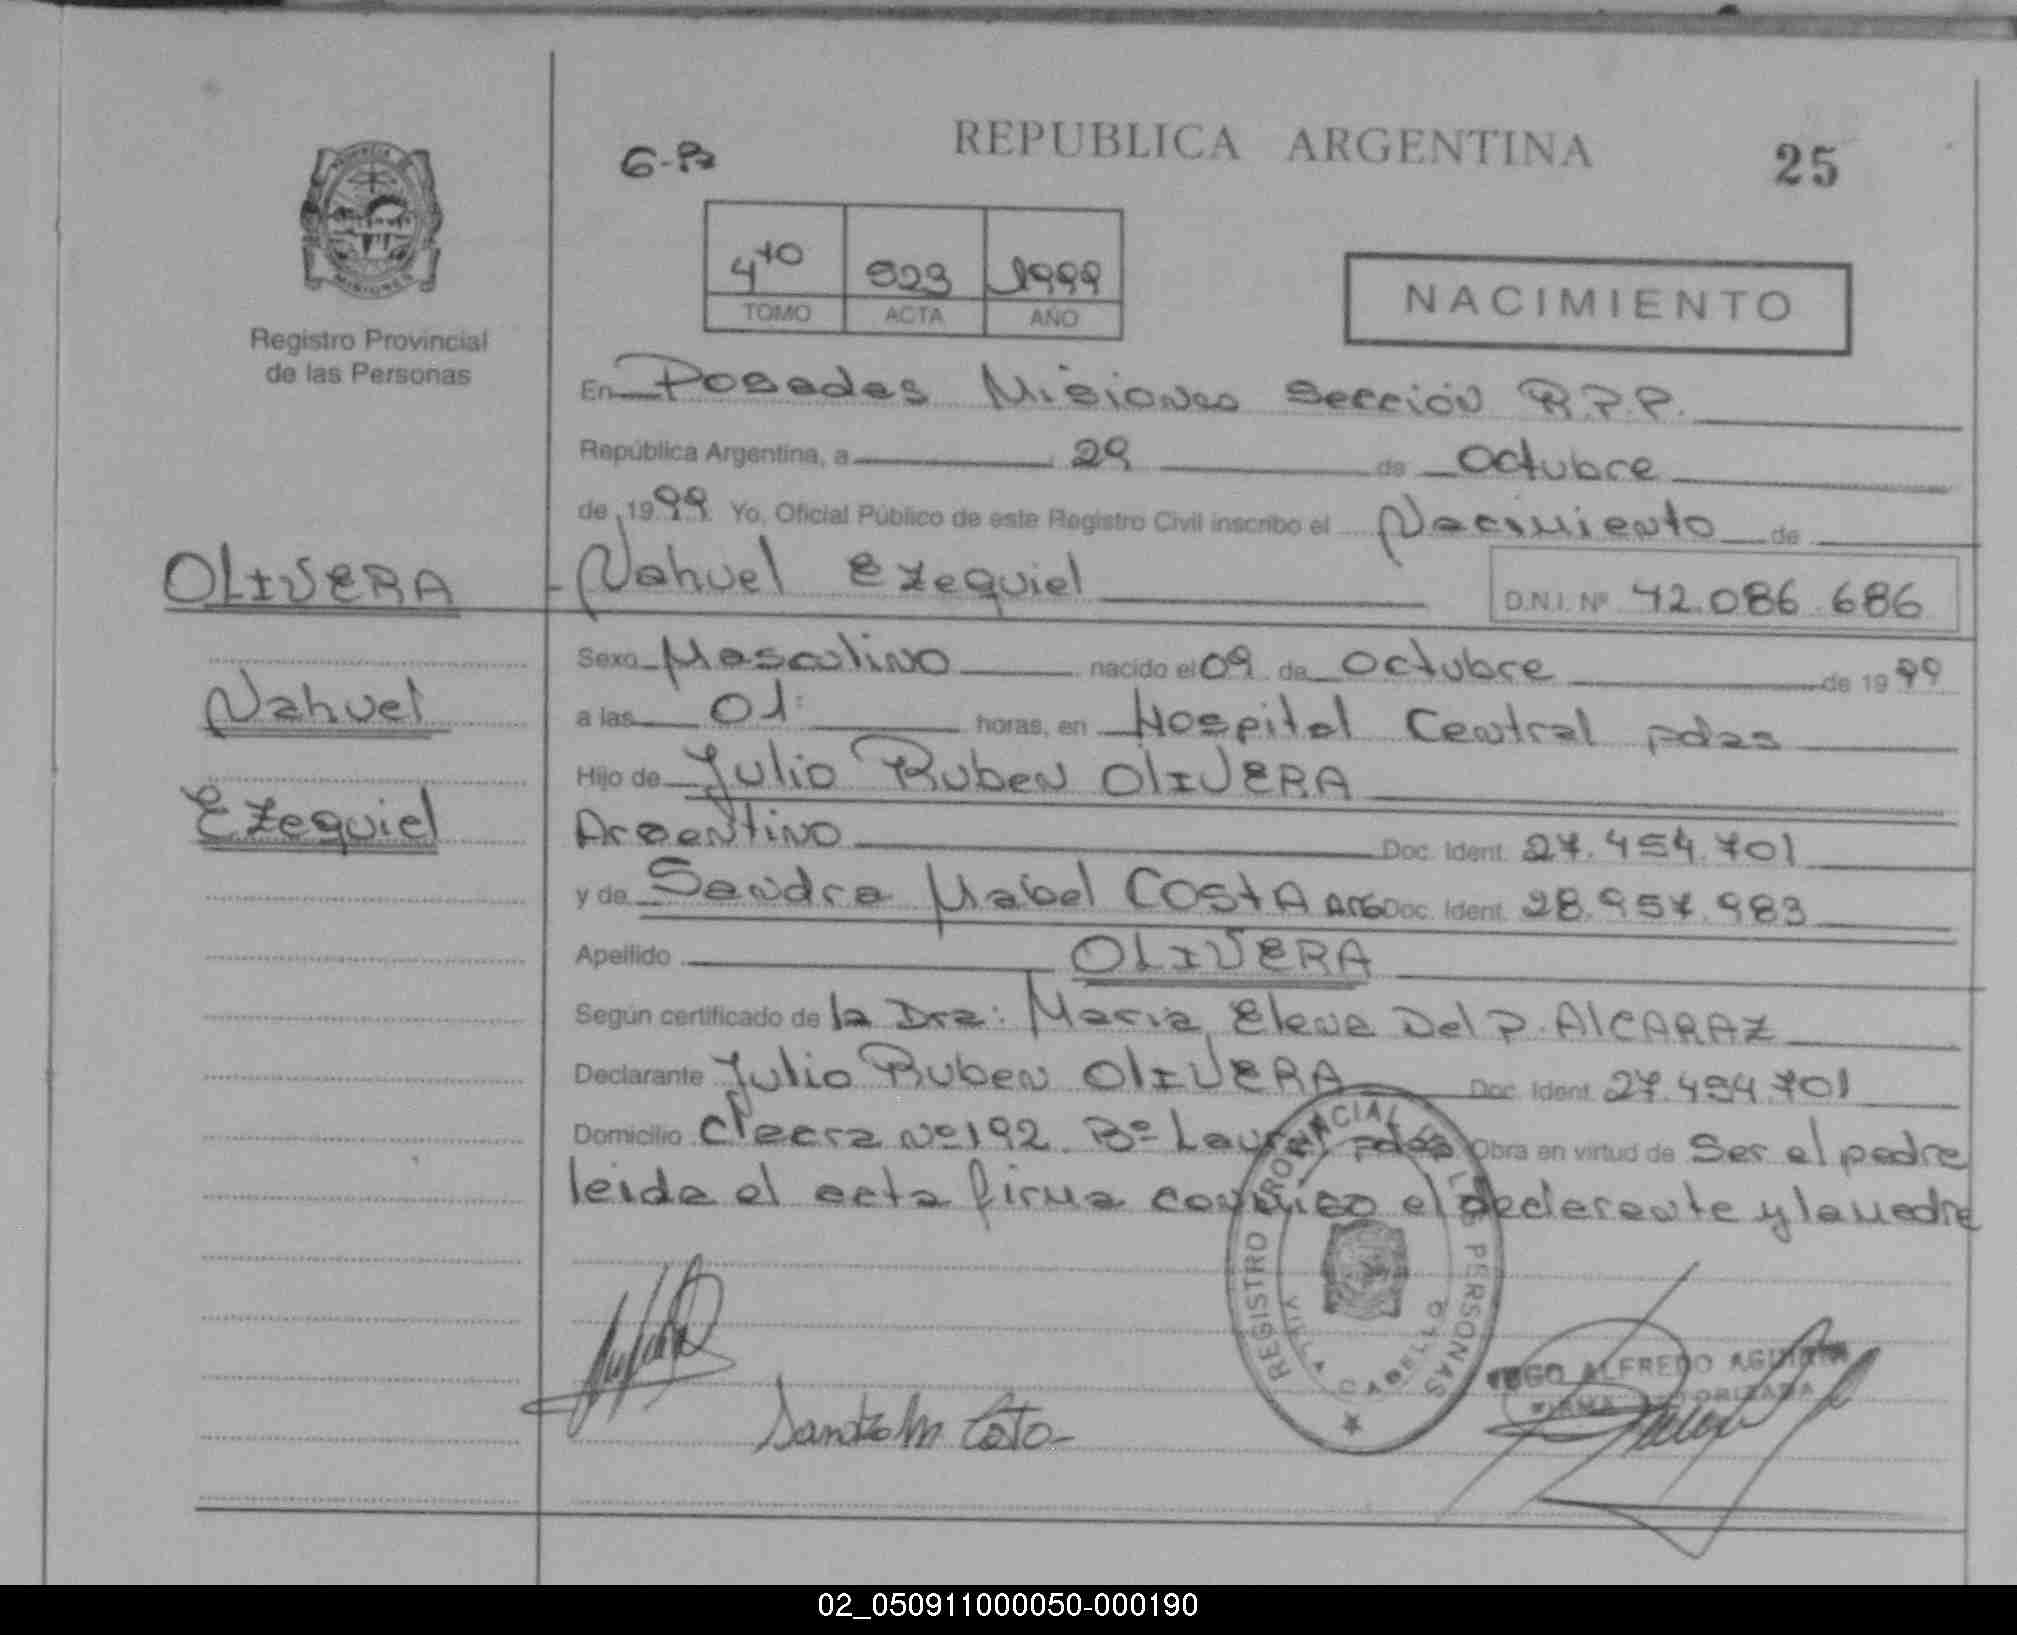 REPUBLICA ARGENTINA
25
4to 523 1999
TOMO ACTA AÑO
NACIMIENTO
Registro Provincial
de las Personas
En Posadas Misiones Sección R.P.P.
República Argentina, a 29 de Octubre
de 1999. Yo, Oficial Público de este Registro Civil inscribo el Nacimiento de
OLIVERA
Nahuel Ezequiel
D.N.I. Nº 42.086.686
Sexo Masculino nacido el 09 de Octubre de 1999
Nahuel
a las 01: horas, en Hospital Central pdas
Hijo de Julio Ruben OLIVERA
Ezequiel
Argentino Doc. Ident. 27.494.701
y de Sandra Mabel COSTA ARG Doc. Ident. 28.957.983
Apellido OLIVERA
Según certificado de la Dra: Maria Elena Del P. ALCARAZ
Declarante Julio Ruben OLIVERA Doc. Ident. 27.494.701
Domicilio Nº 192. Bº Laurel pdas Obra en virtud de Ser el padre
leida el acta firma conmigo el declarante y la madre
REGISTRO PROVINCIAL DE LAS PERSONAS
VILLA CABELLO
HUGO ALFREDO AGUIRRE
FIRMA AUTORIZADA
02_050911000050-000190